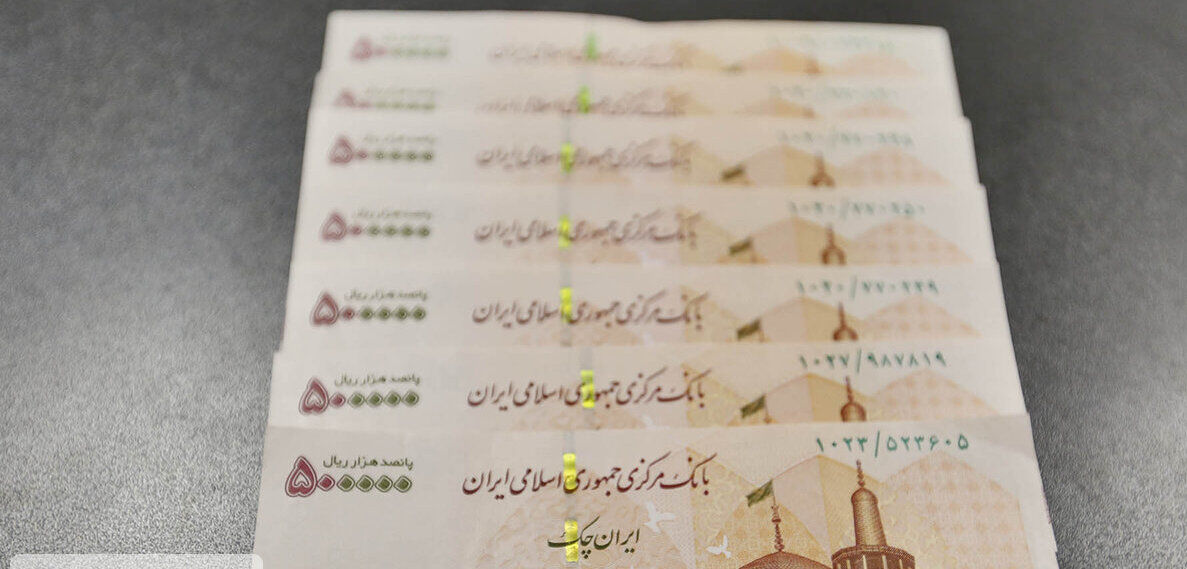 بانک مرکزی جمهوری اسلامی ایران
۵۰۰۰۰۰۰
بانک مرکزی جمهوری اسلامی ایران
۵۰۰۰۰۰
بانک مرکزی جمهوری اسلامی ایران
پانصد هزار ریال
۵۰۰۰۰۰
بانک مرکزی جمهوری اسلامی ایران
۱۰۲۰/۷۷۰۲۴۹
پانصد هزار ریال
۵۰۰۰۰۰
بانک مرکزی جمهوری اسلامی ایران
۱۰۲۷/۹۸۷۸۱۹
پانصد هزار ریال
۵۰۰۰۰۰
بانک مرکزی جمهوری اسلامی ایران
۱۰۲۳/۵۲۳۶۰۵
پانصد هزار ریال
۵۰۰۰۰۰
بانک مرکزی جمهوری اسلامی ایران
ایران چک